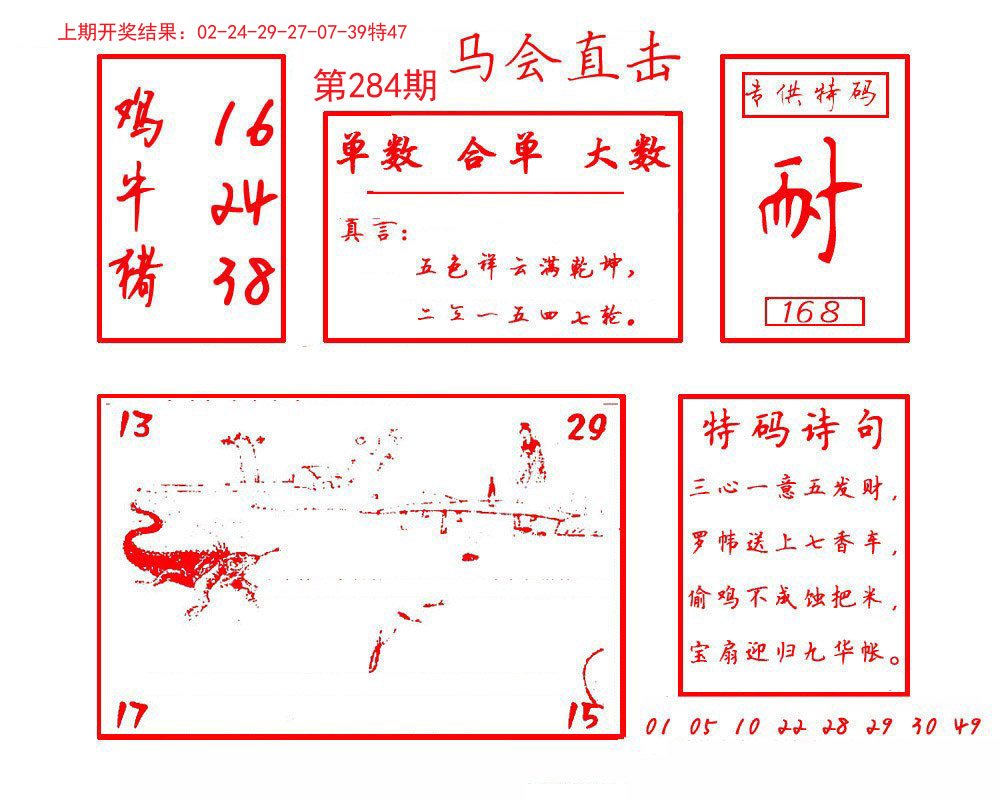 上期开奖结果：02-24-29-27-07-39特47
第284期
马会直击
鸡 16
牛 24
猪 38
单数 合单 大数
真言：
五色祥云满乾坤，
二三一五四七轮。
专供特码
耐
168
13
29
17
15
特码诗句
三心一意五发财，
罗帏送上七香车，
偷鸡不成蚀把米，
宝扇迎归九华帐。
01 05 10 22 28 29 30 49